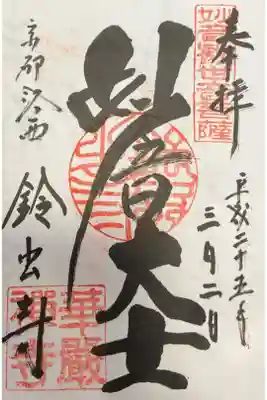 奉拝
平成二十五年
三月二日
妙音大士
京都洛西
鈴虫寺
華厳禅寺